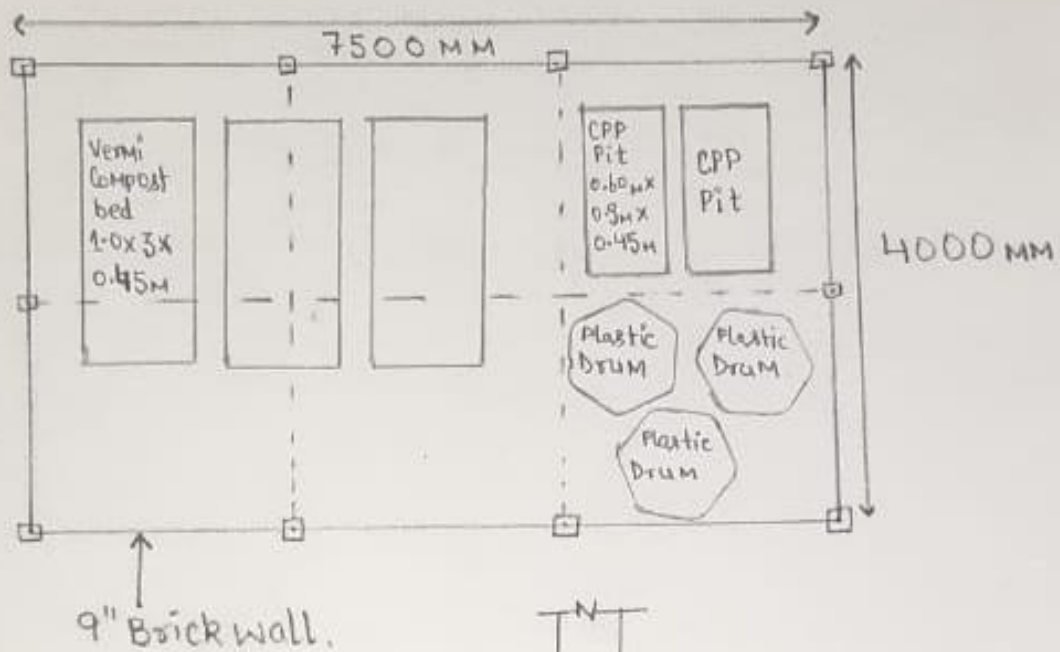 7500 MM
Vermi
Compost
bed
1.0x3x
0.45M
CPP
Pit
0.60Mx
0.9Mx
0.45M
CPP
Pit
4000 MM
Plastic
Drum
Plastic
Drum
Plastic
Drum
9" Brick wall.
N